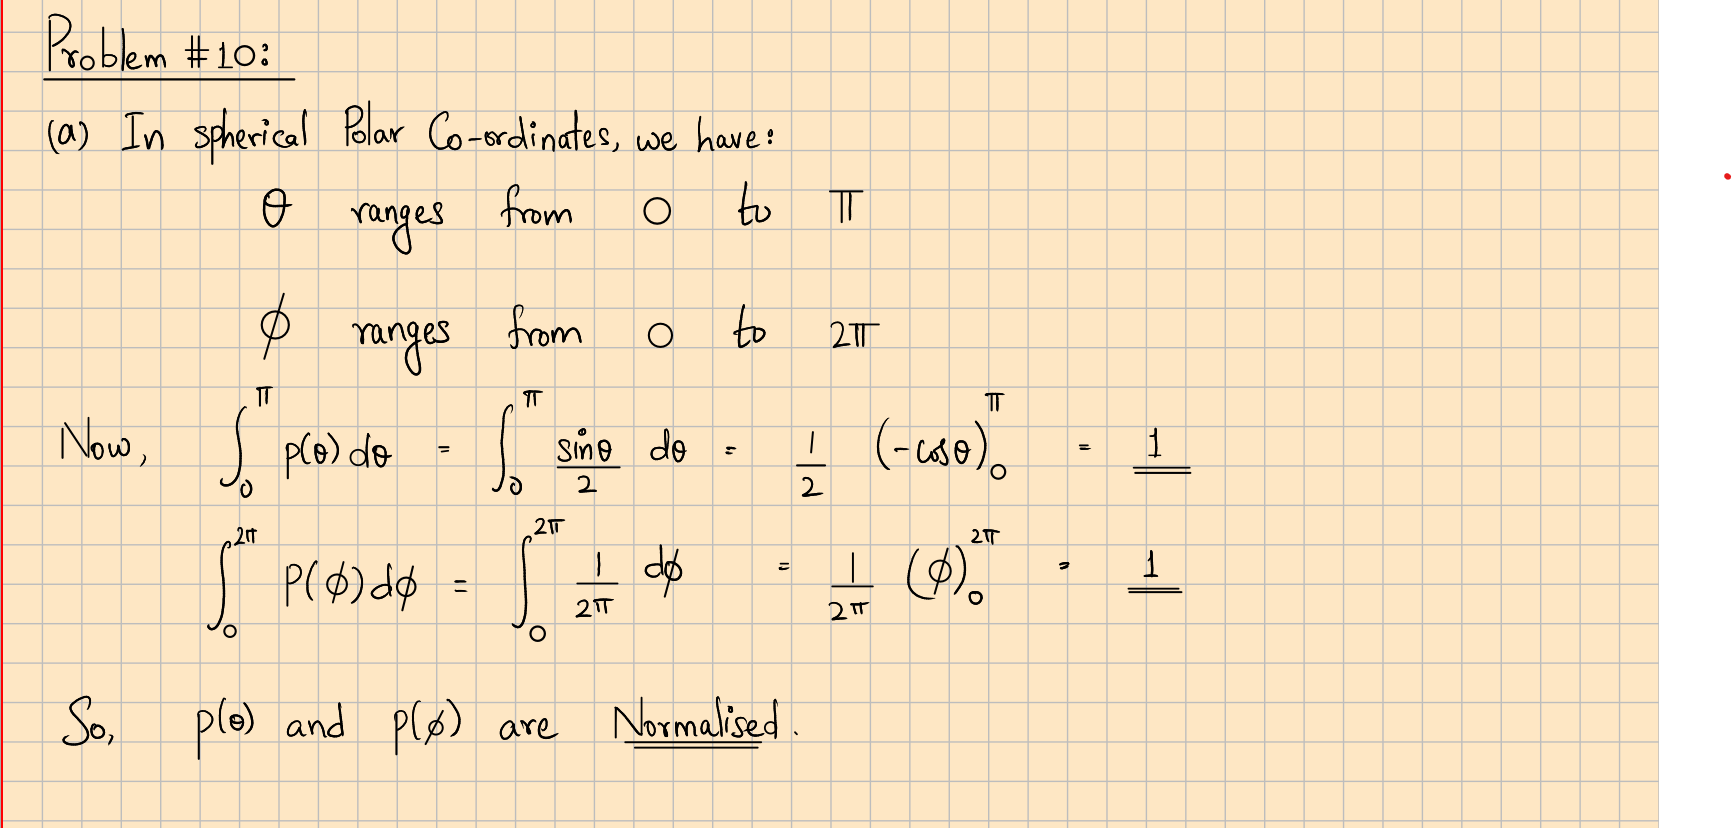 Problem #10:
(a) In spherical Polar Co-ordinates, we have:
θ ranges from 0 to π
ϕ ranges from 0 to 2π
Now, ∫₀^π p(θ) dθ = ∫₀^π sinθ/2 dθ = 1/2 (-cosθ)₀^π = 1
∫₀^2π P(ϕ) dϕ = ∫₀^2π 1/2π dϕ = 1/2π (ϕ)₀^2π = 1
So, p(θ) and p(ϕ) are Normalised.